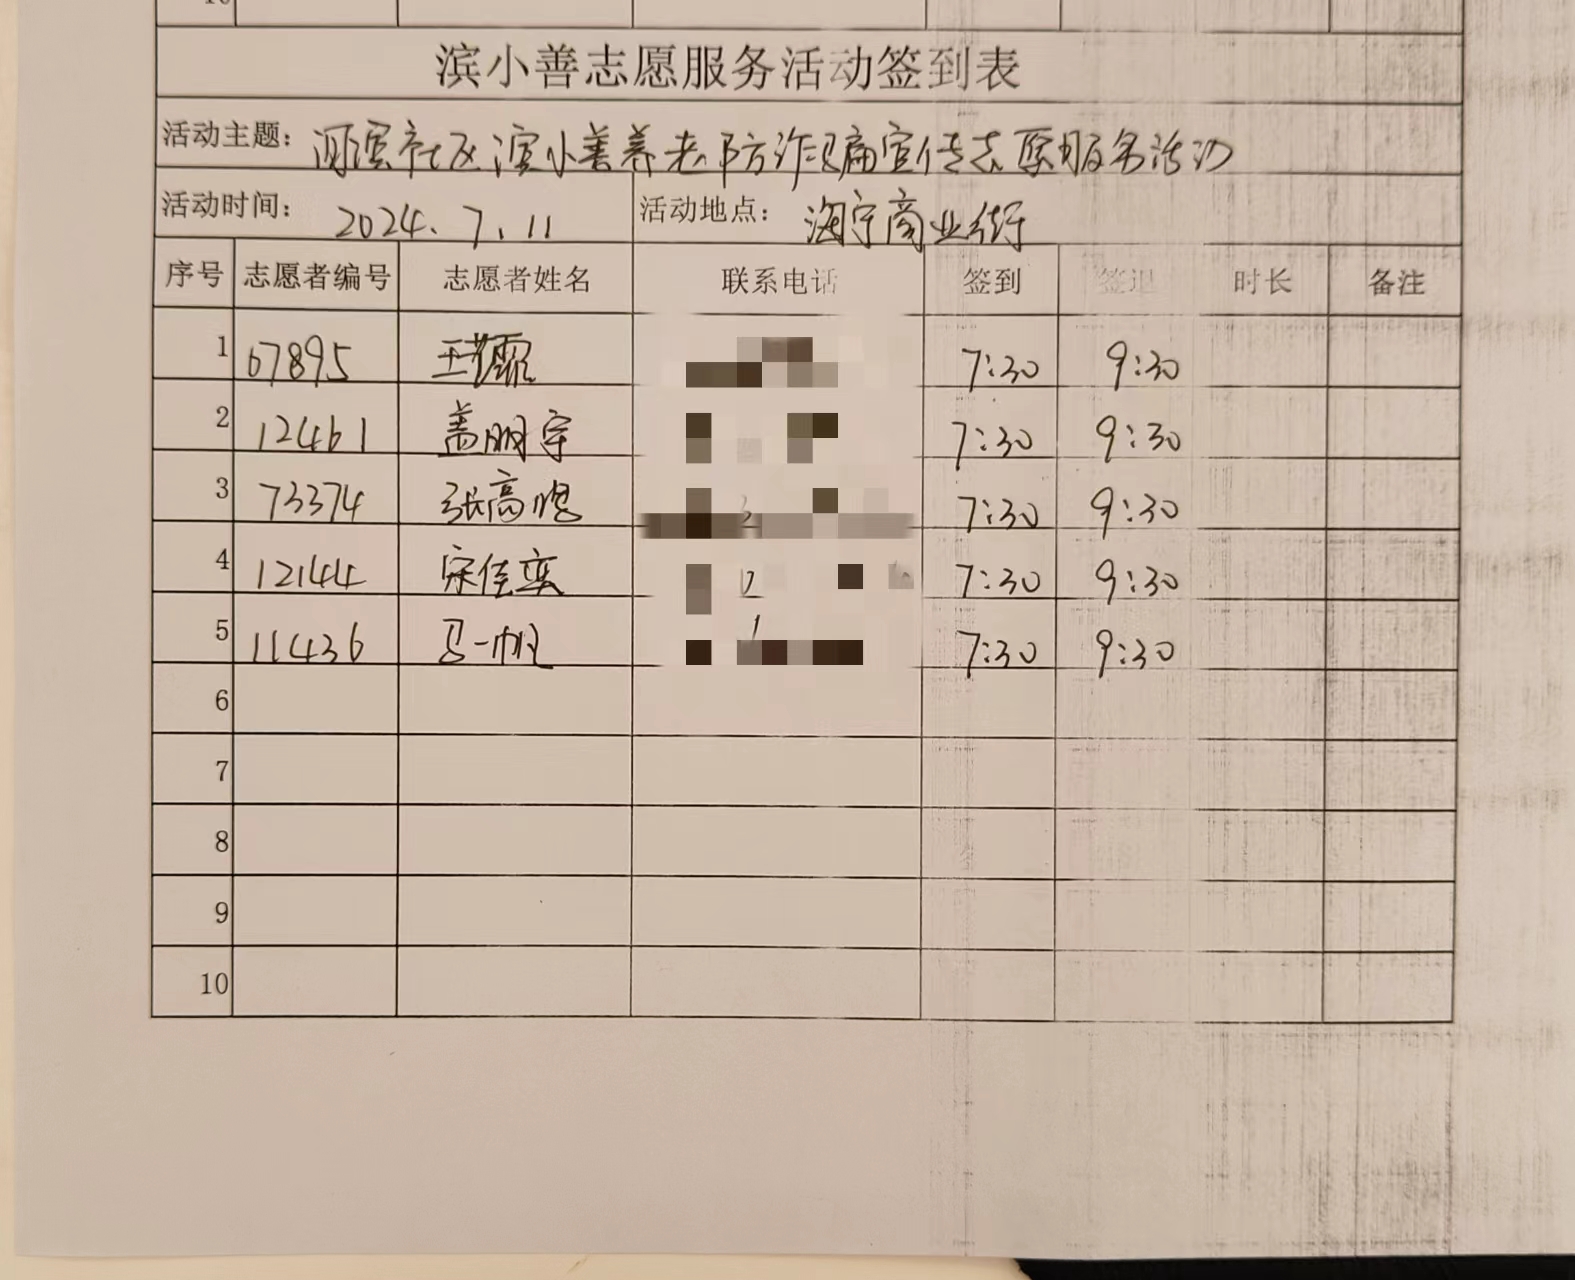 滨小善志愿服务活动签到表
活动主题: 河滨社区滨小善养老防诈骗宣传志愿服务活动
活动时间: 2024.7.11 活动地点: 海宁商业街
序号 志愿者编号 志愿者姓名 联系电话 签到 签退 时长 备注
1 67895 7:30 9:30
2 12461 盖明宇 7:30 9:30
3 73374 张高 7:30 9:30
4 12144 宋佳奕 7:30 9:30
5 11436 马一帆 7:30 9:30
6
7
8
9
10